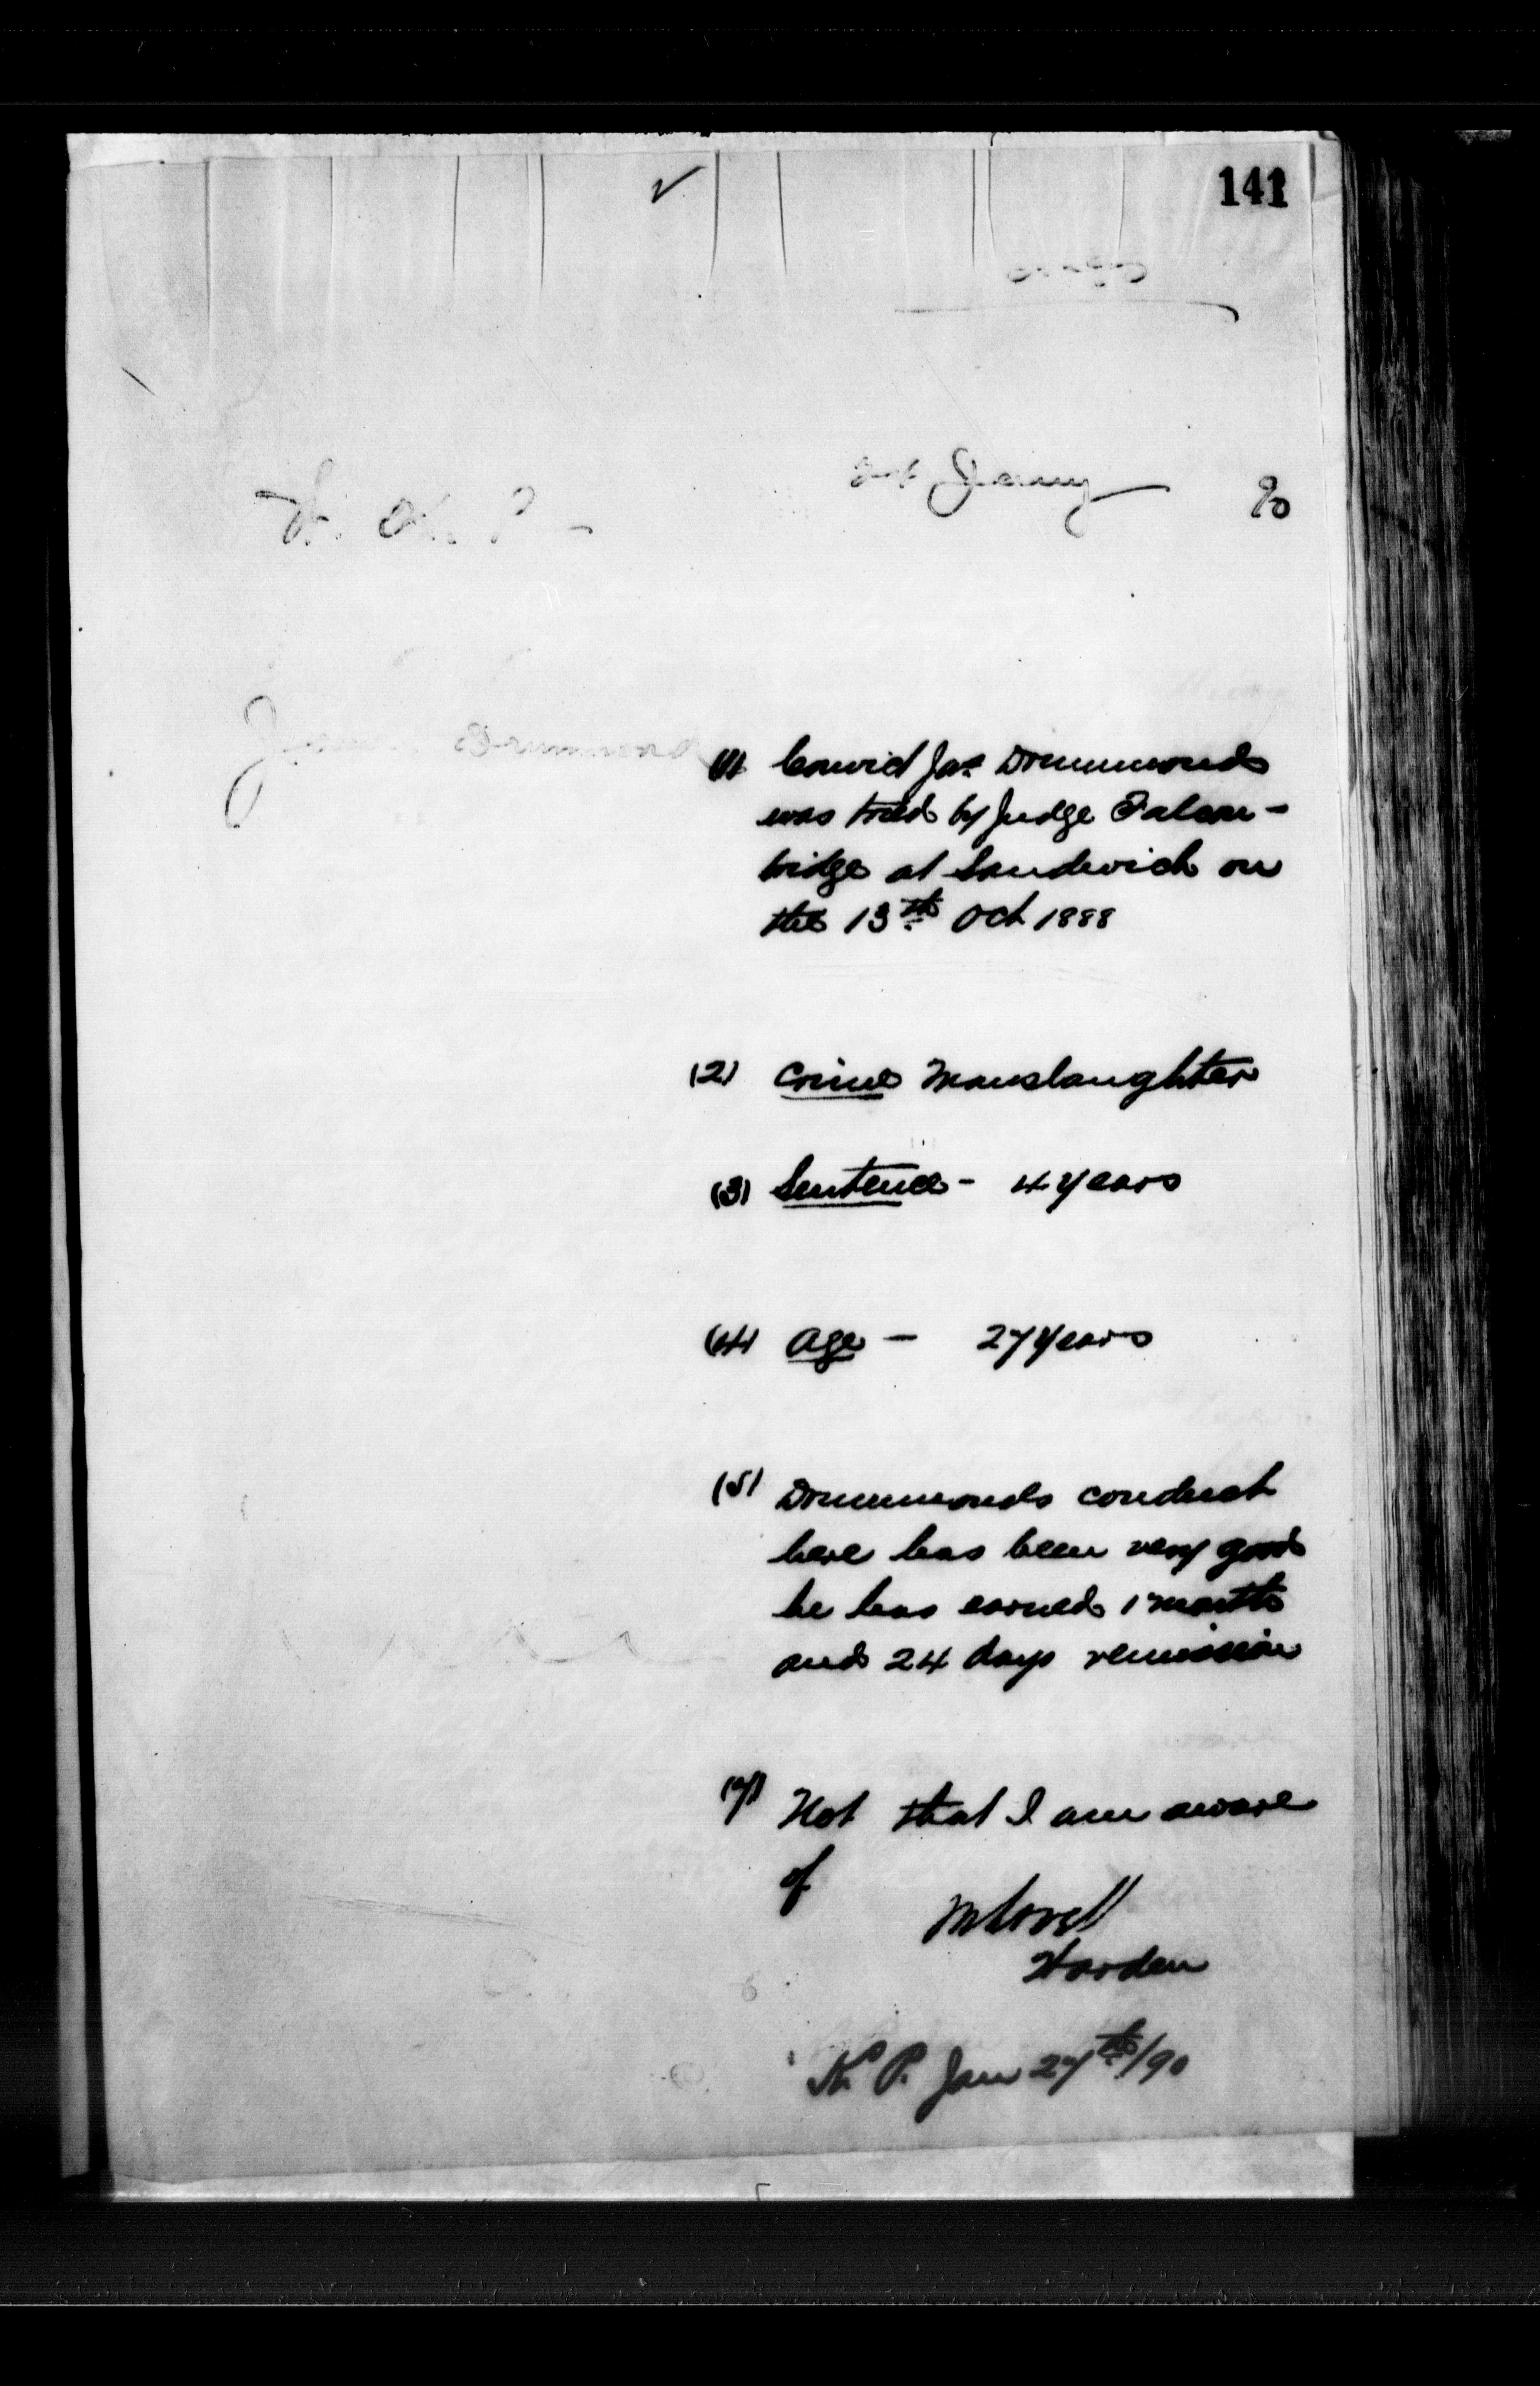 141
W. K. P.
Jany 90
James Drummond
(1) Convict Jas. Drummond
was tried by Judge Falcon-
bridge at Sandwich on
the 13th Oct 1888
(2) Crime Manslaughter
(3) Sentence - 4 years
(4) Age - 27 years
(5) Drummonds conduct
here has been very good
he has earned 1 month
and 24 days remission
(7) Not that I am aware
of
M Lavell
Warden
K. P. Jan 27th/90